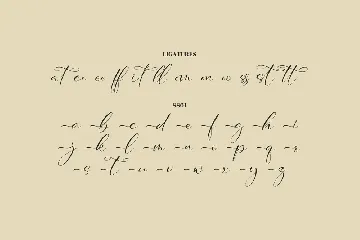 LIGATURES
at ev ov ff it ll om on os ss st tt
SS01
-a -b -c -d -e -f -g -h -i
-j -k -l -m -n -o -p -q -r
-s -t -u -v -w -x -y -z